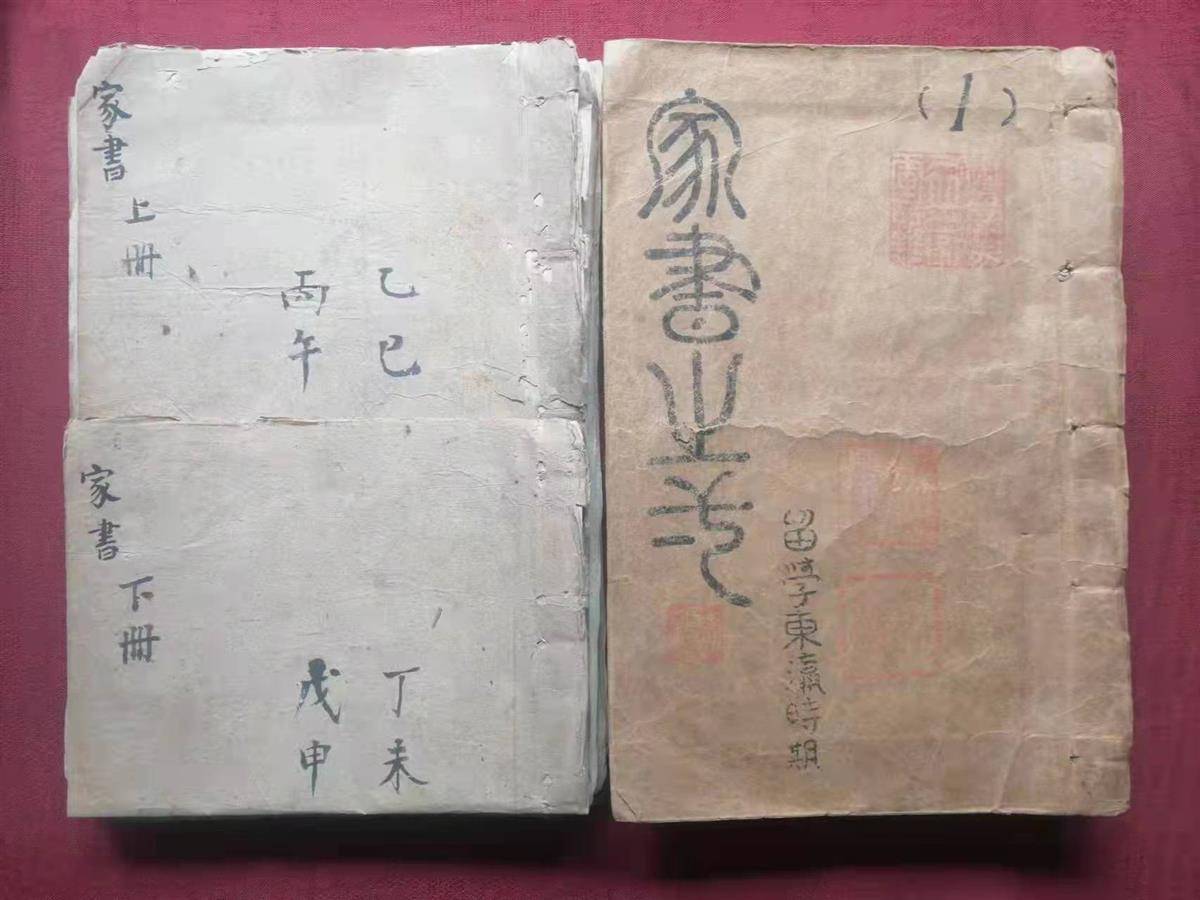 家書
上冊
乙巳
丙午
家書
下冊
丁未
戊申
(1)
家書之
留學東瀛時期